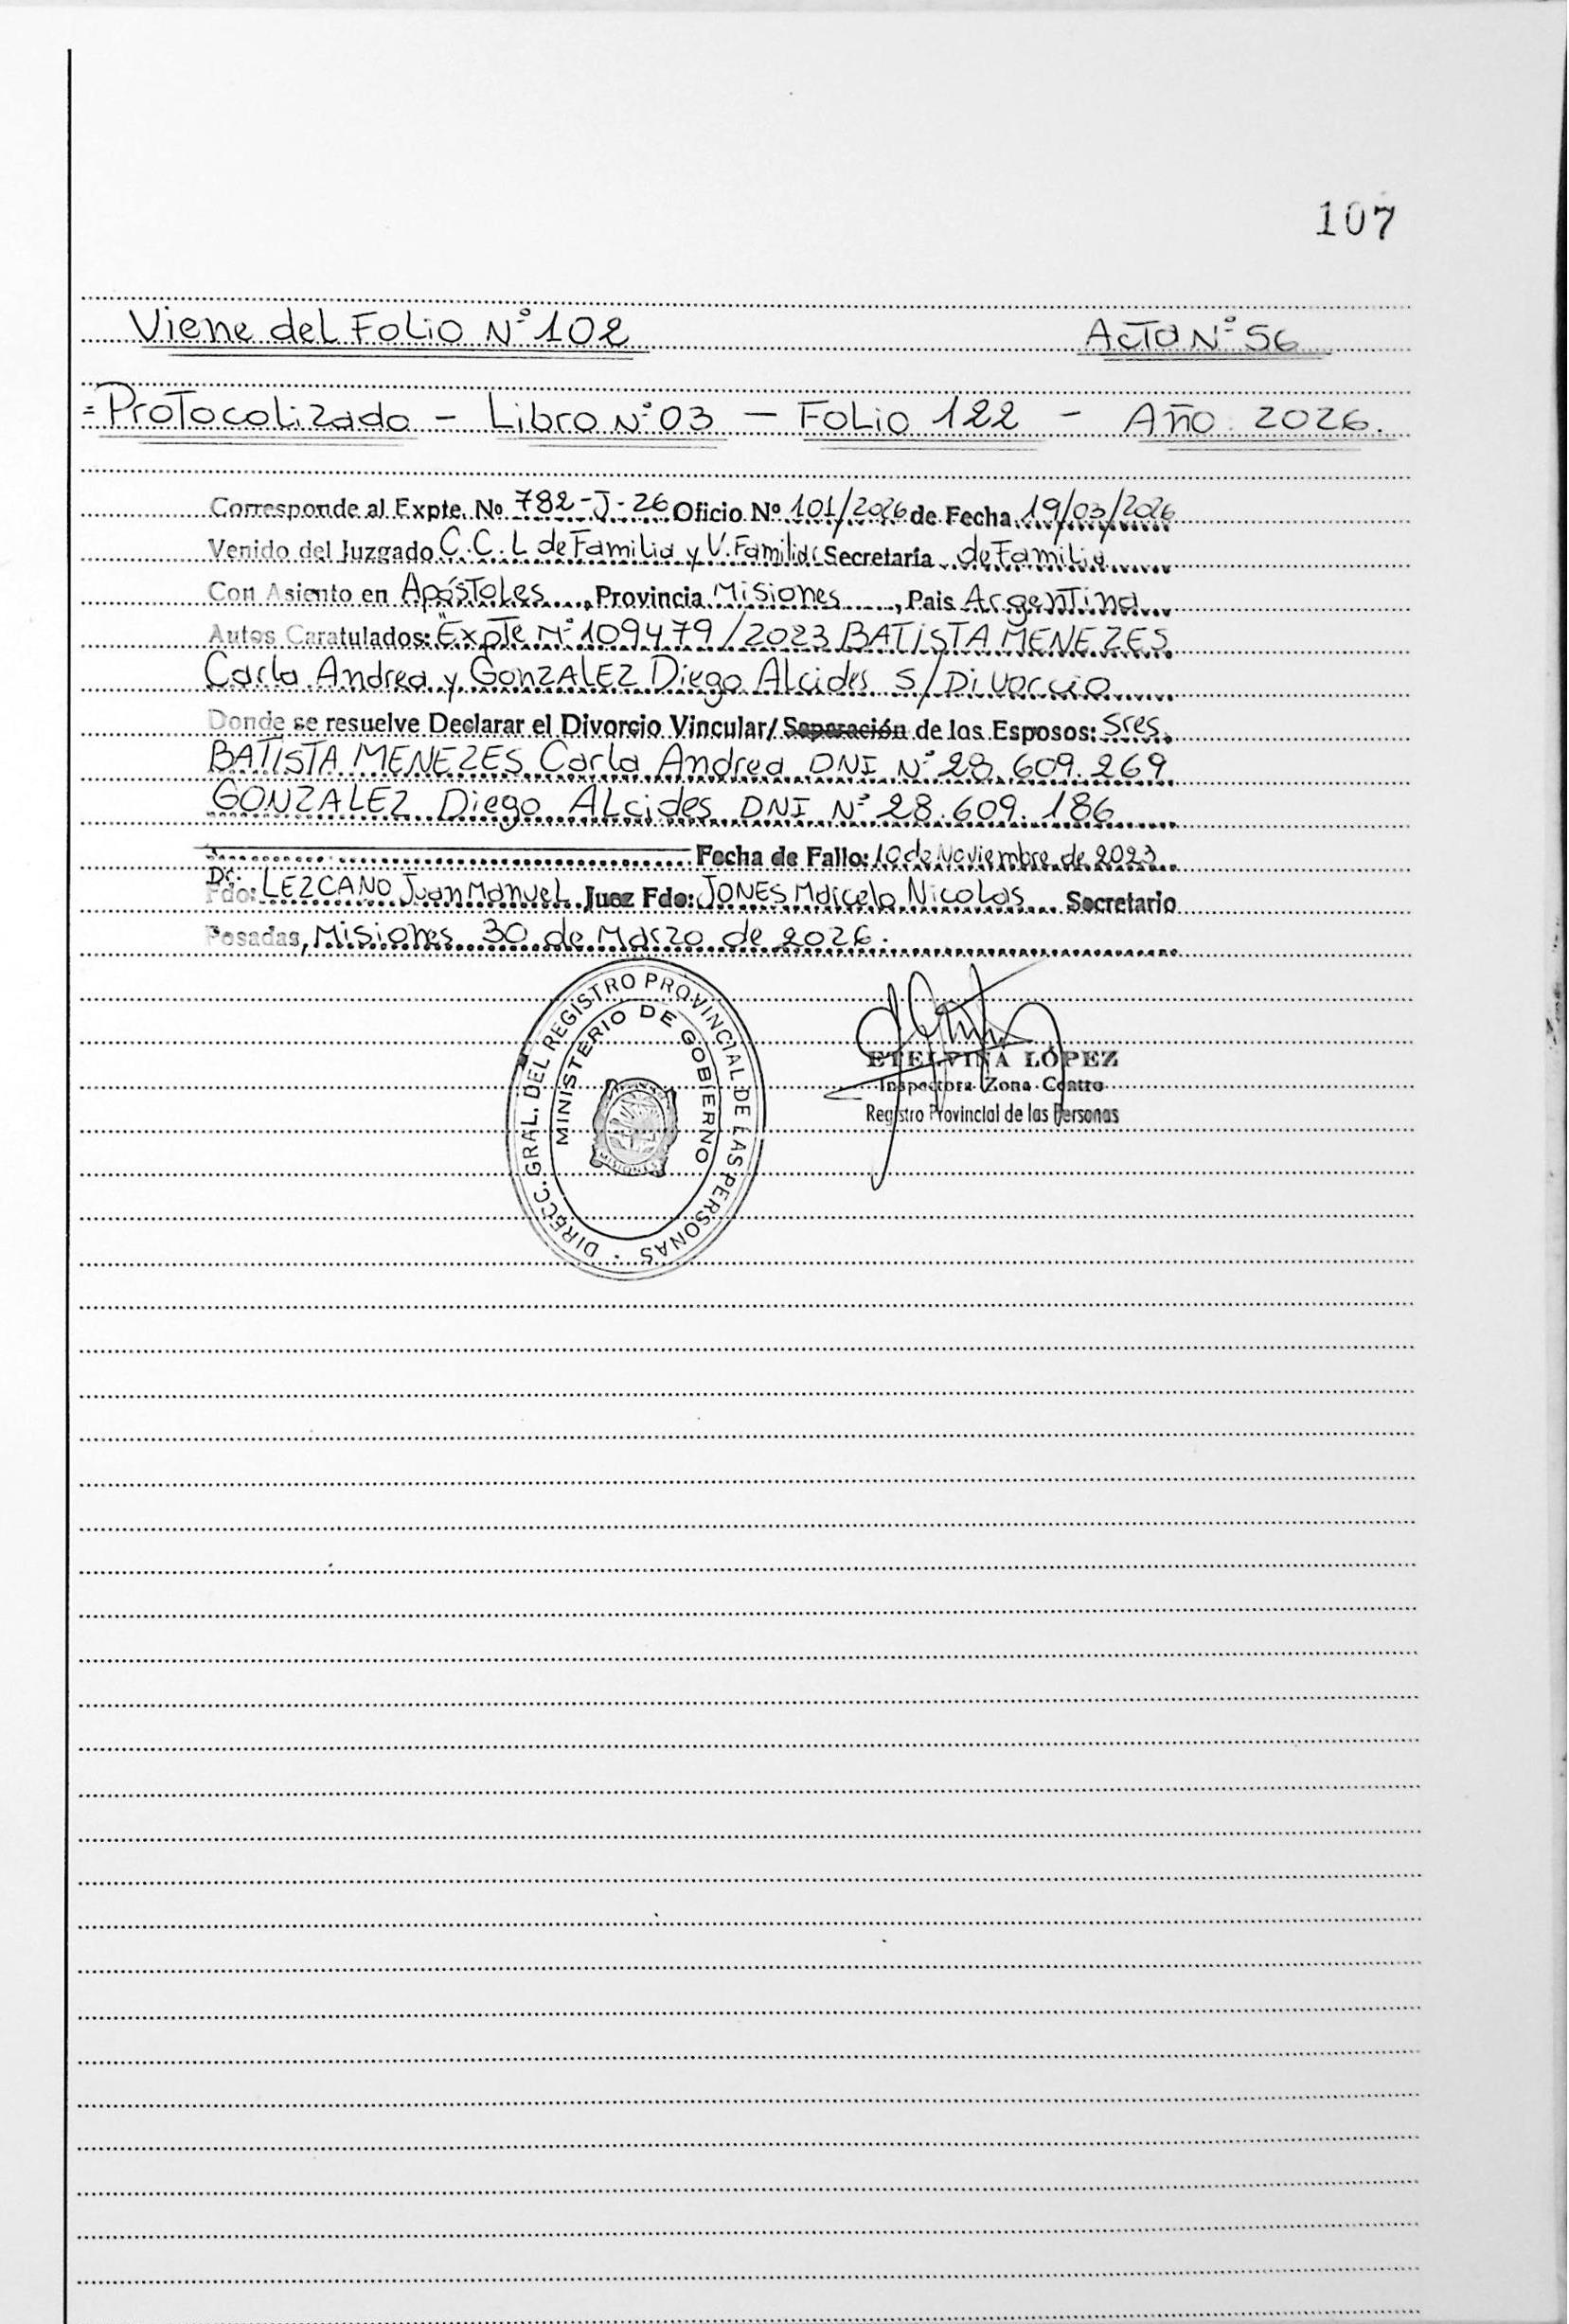 107
Viene del Folio N° 102 Acta N° 56
= Protocolizado - Libro N° 03 - Folio 122 - Año: 2026.
Corresponde al Expte. No 782-J-26 Oficio Nº 101/2026 de Fecha 19/03/2026
Venido del Juzgado C.C.L de Familia y V. Familiar Secretaría de Familia
Con Asiento en Apóstoles, Provincia Misiones, Pais Argentina
Autos Caratulados: "Expte N° 109479/2023 BATISTA MENEZES
Carla Andrea y GONZALEZ Diego Alcides S/Divorcio
Donde se resuelve Declarar el Divorcio Vincular/Separación de los Esposos: Sres.
BATISTA MENEZES Carla Andrea DNI N° 28.609.269
GONZALEZ Diego Alcides DNI N° 28.609.186
Fecha de Fallo: 10 de Noviembre de 2023
Dr.
Fdo: LEZCANO Juan Manuel Juez Fdo: JONES Marcelo Nicolas Secretario
Posadas, Misiones 30 de Marzo de 2026.
DIRECC. GRAL. DEL REGISTRO PROVINCIAL DE LAS PERSONAS
MINISTERIO DE GOBIERNO
MISIONES
ETELVINA LÓPEZ
Inspectora Zona Centro
Registro Provincial de las Personas